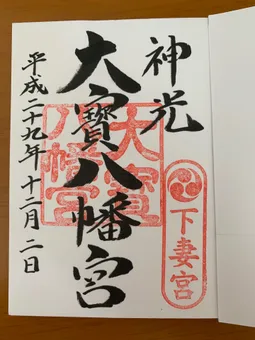 神光
下妻宮
大寶八幡宮
大
八幡宮
平成二十九年十二月二日